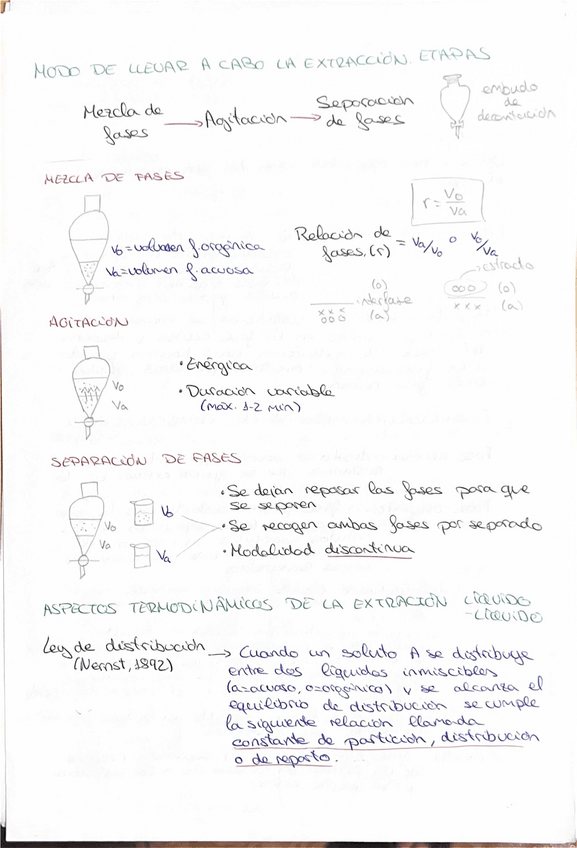 MODO DE LLEVAR A CABO LA EXTRACCIÓN. ETAPAS
Mezcla de fases → Agitación → Separación de fases
embudo
de
decantación
MEZCLA DE FASES
r = Vo/Va
Vo = volumen f. orgánica
Va = volumen f. acuosa
Relación de
fases, (r) = Va/Vo o Vo/Va
extracto
(o)
interfase
x x x
o o o
(a)
o o o (o)
x x x (a)
AGITACIÓN
Vo
Va
· Enérgica
· Duración variable
(máx. 1-2 min)
SEPARACIÓN DE FASES
Vo
Va
Vo
Va
· Se dejan reposar las fases para que
se separen
· Se recogen ambas fases por separado
· Modalidad discontinua
ASPECTOS TERMODINÁMICOS DE LA EXTRACIÓN LÍQUIDO
-LÍQUIDO
Ley de distribución
(Nernst, 1892)
→ Cuando un soluto A se distribuye
entre dos líquidos inmiscibles
(a=acuoso, o=orgánico) y se alcanza el
equilibrio de distribución se cumple
la siguiente relación llamada
constante de partición, distribución
o de reparto.